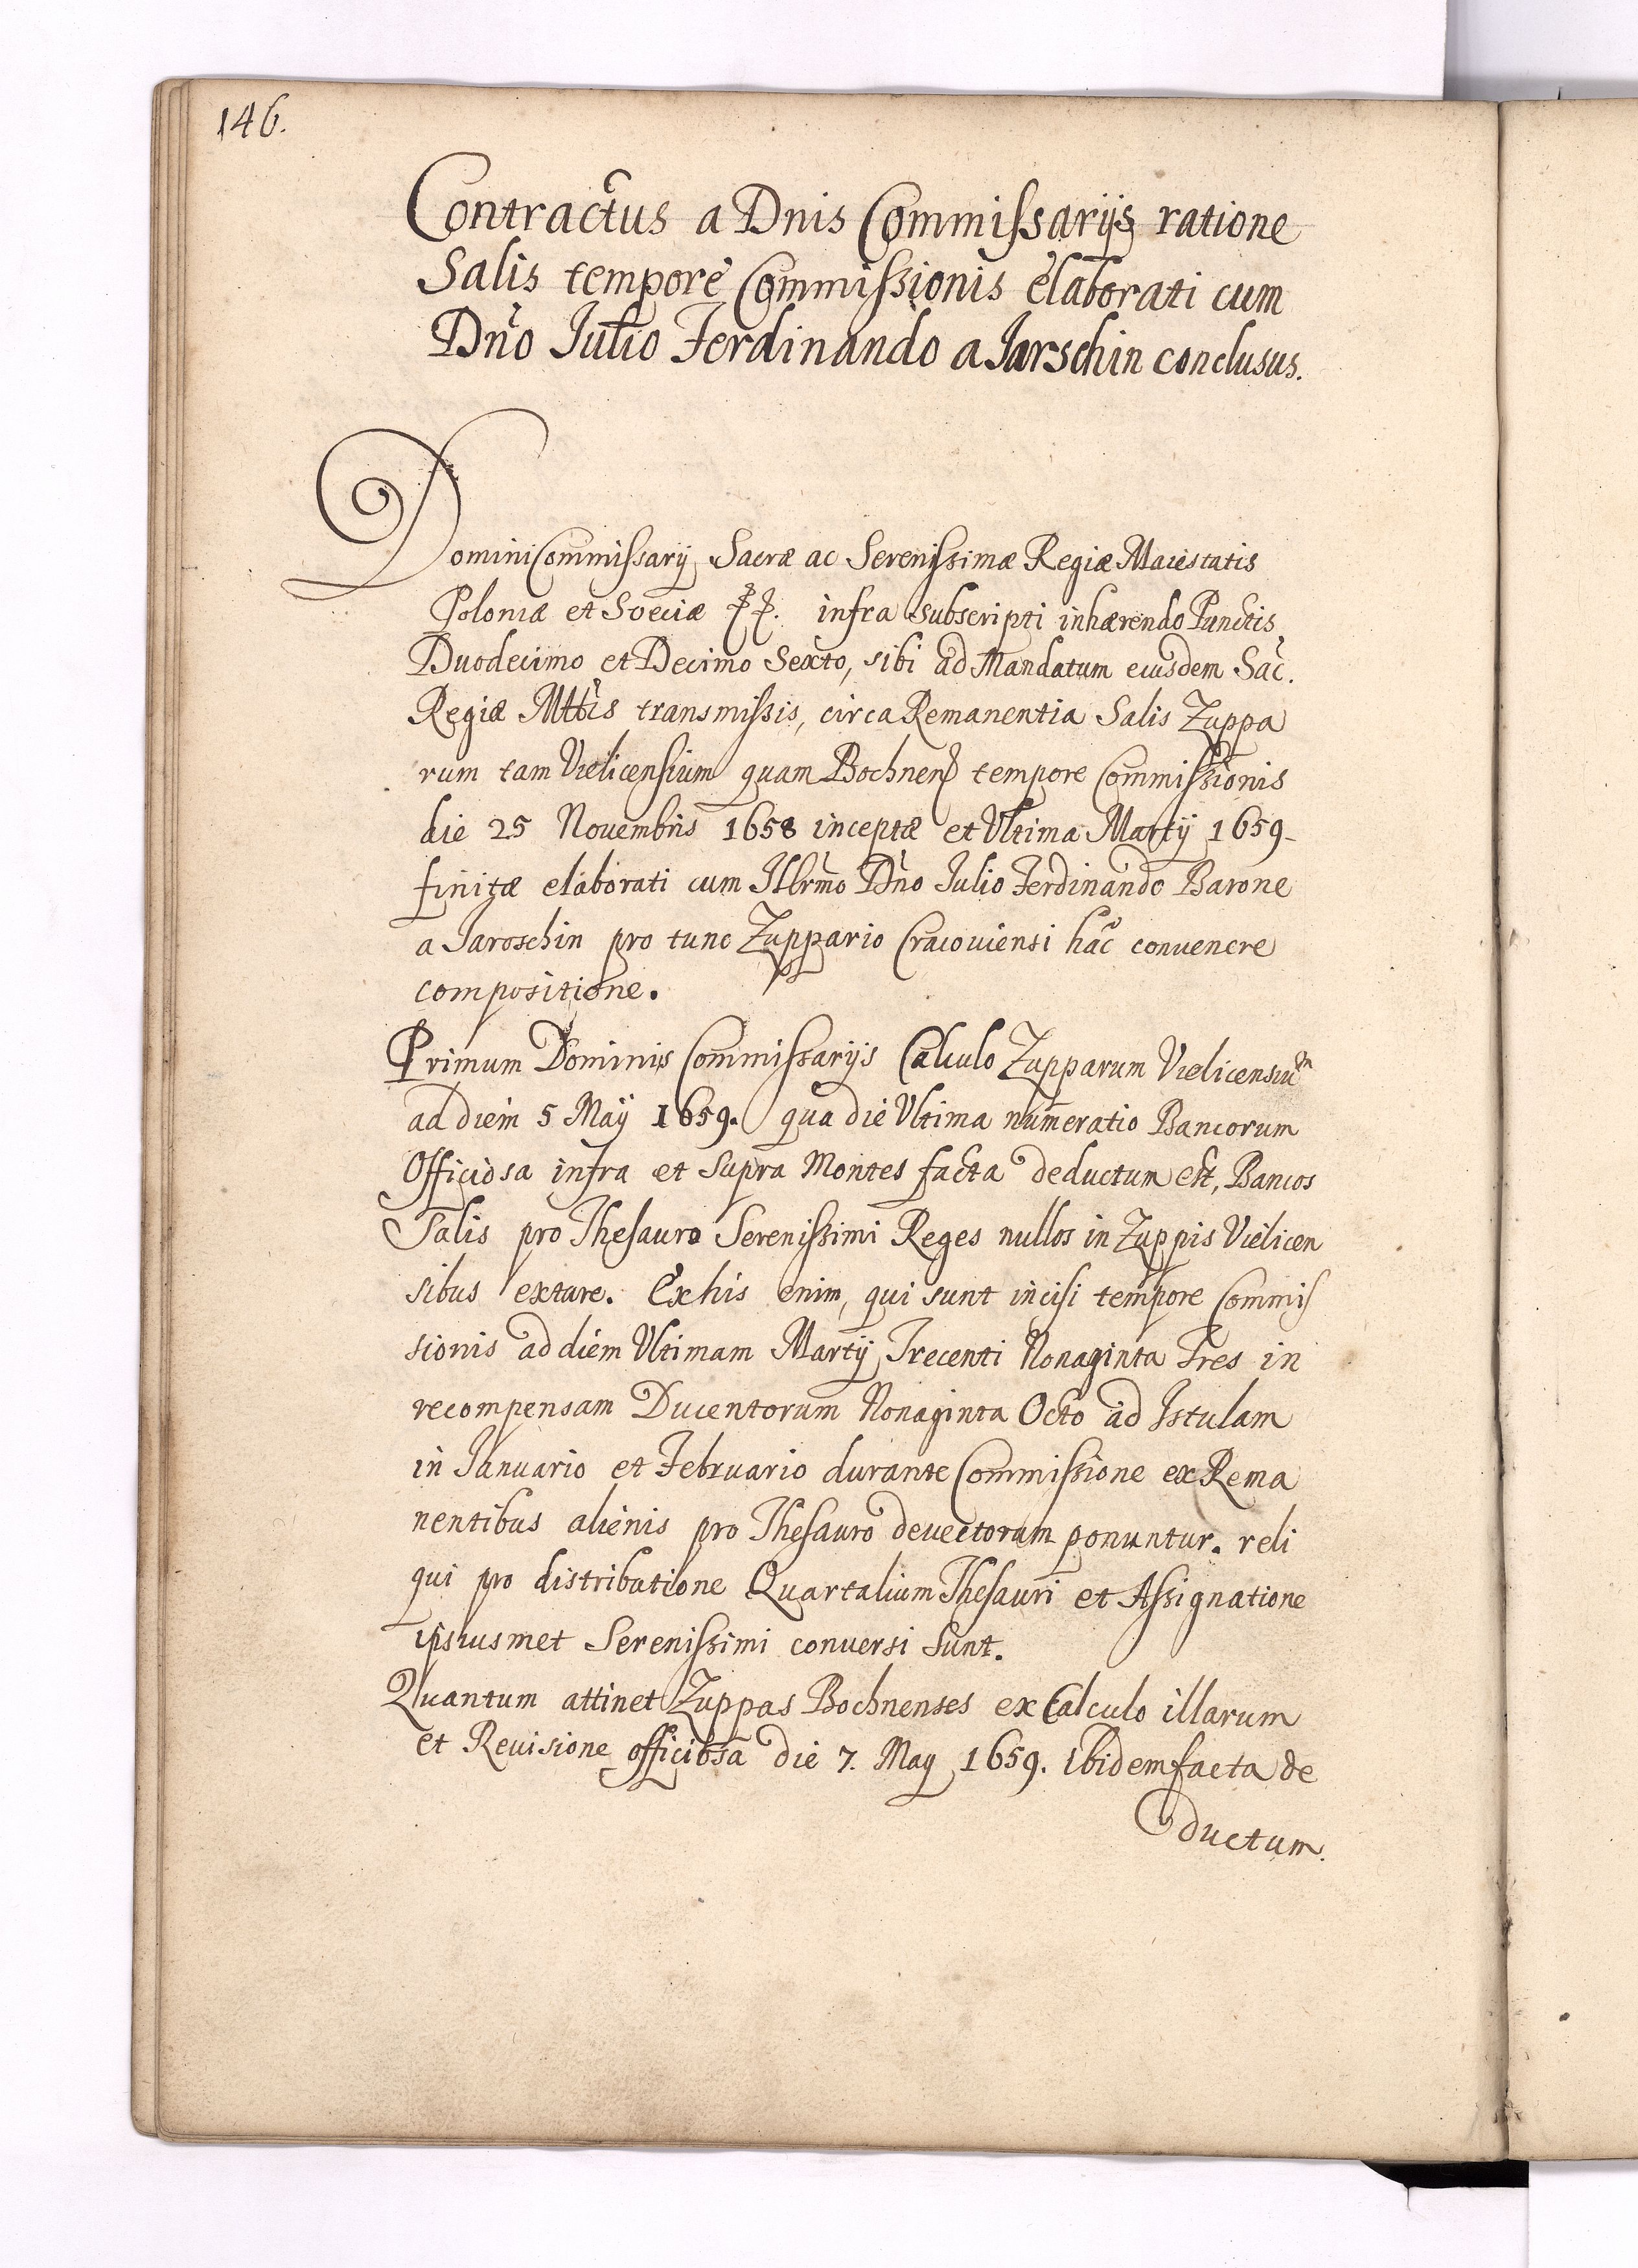 146.
Contractus a Dnis Commissarijs ratione
Salis tempore Commissionis elaborati cum
Dno Julio Ferdinando a Jarschin conclusus.
Domini Commissarij Sacræ ac Serenissimæ Regiæ Maiestatis
Poloniæ et Sveciæ infra subscripti inhærendo Punctis
Duodecimo et Decimo Sexto, sibi ad Mandatum eiusdem Sac.
Regiæ Mttis transmissis, circa Remanentia Salis Zuppa
rum tam Vielicensium quam Bochnens tempore Commissionis
die 25 Novembris 1658 inceptæ et Vltima Martij 1659
finitæ elaborati cum Illrmo Dno Julio Ferdinando Barone
a Jaroschin pro tunc Zuppario Cracouiensi hac convenere
compositione.
Primum Dominis Commissarijs Calculo Zupparum Vielicensium
ad diem 5 Maij 1659. qua die Vltima numeratio Bancorum
Officiosa infra et Supra Montes facta deductum est, Bancos
Salis pro Thesauro Serenissimi Reges nullos in Zuppis Vielicen
sibus extare. Ex his enim, qui sunt incisi tempore Commis
sionis ad diem Vltimam Martij Trecenti Nonaginta Tres in
recompensam Ducentorum Nonaginta Octo ad Istulam
in Januario et Februario durante Commissione ex Rema
nentibus alienis pro Thesauro devectorum ponuntur. reli
qui pro distributione Quartalium Thesauri et Assignatione
ipsiusmet Serenissimi conversi Sunt.
Quantum attinet Zuppas Bochnenses ex Calculo illarum
et Reuisione officiosa die 7. May 1659. Ibidem facta de
ductum.